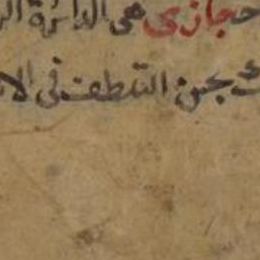 حجازى هى الدائرة ال
ك بحسن التلطف فى الا